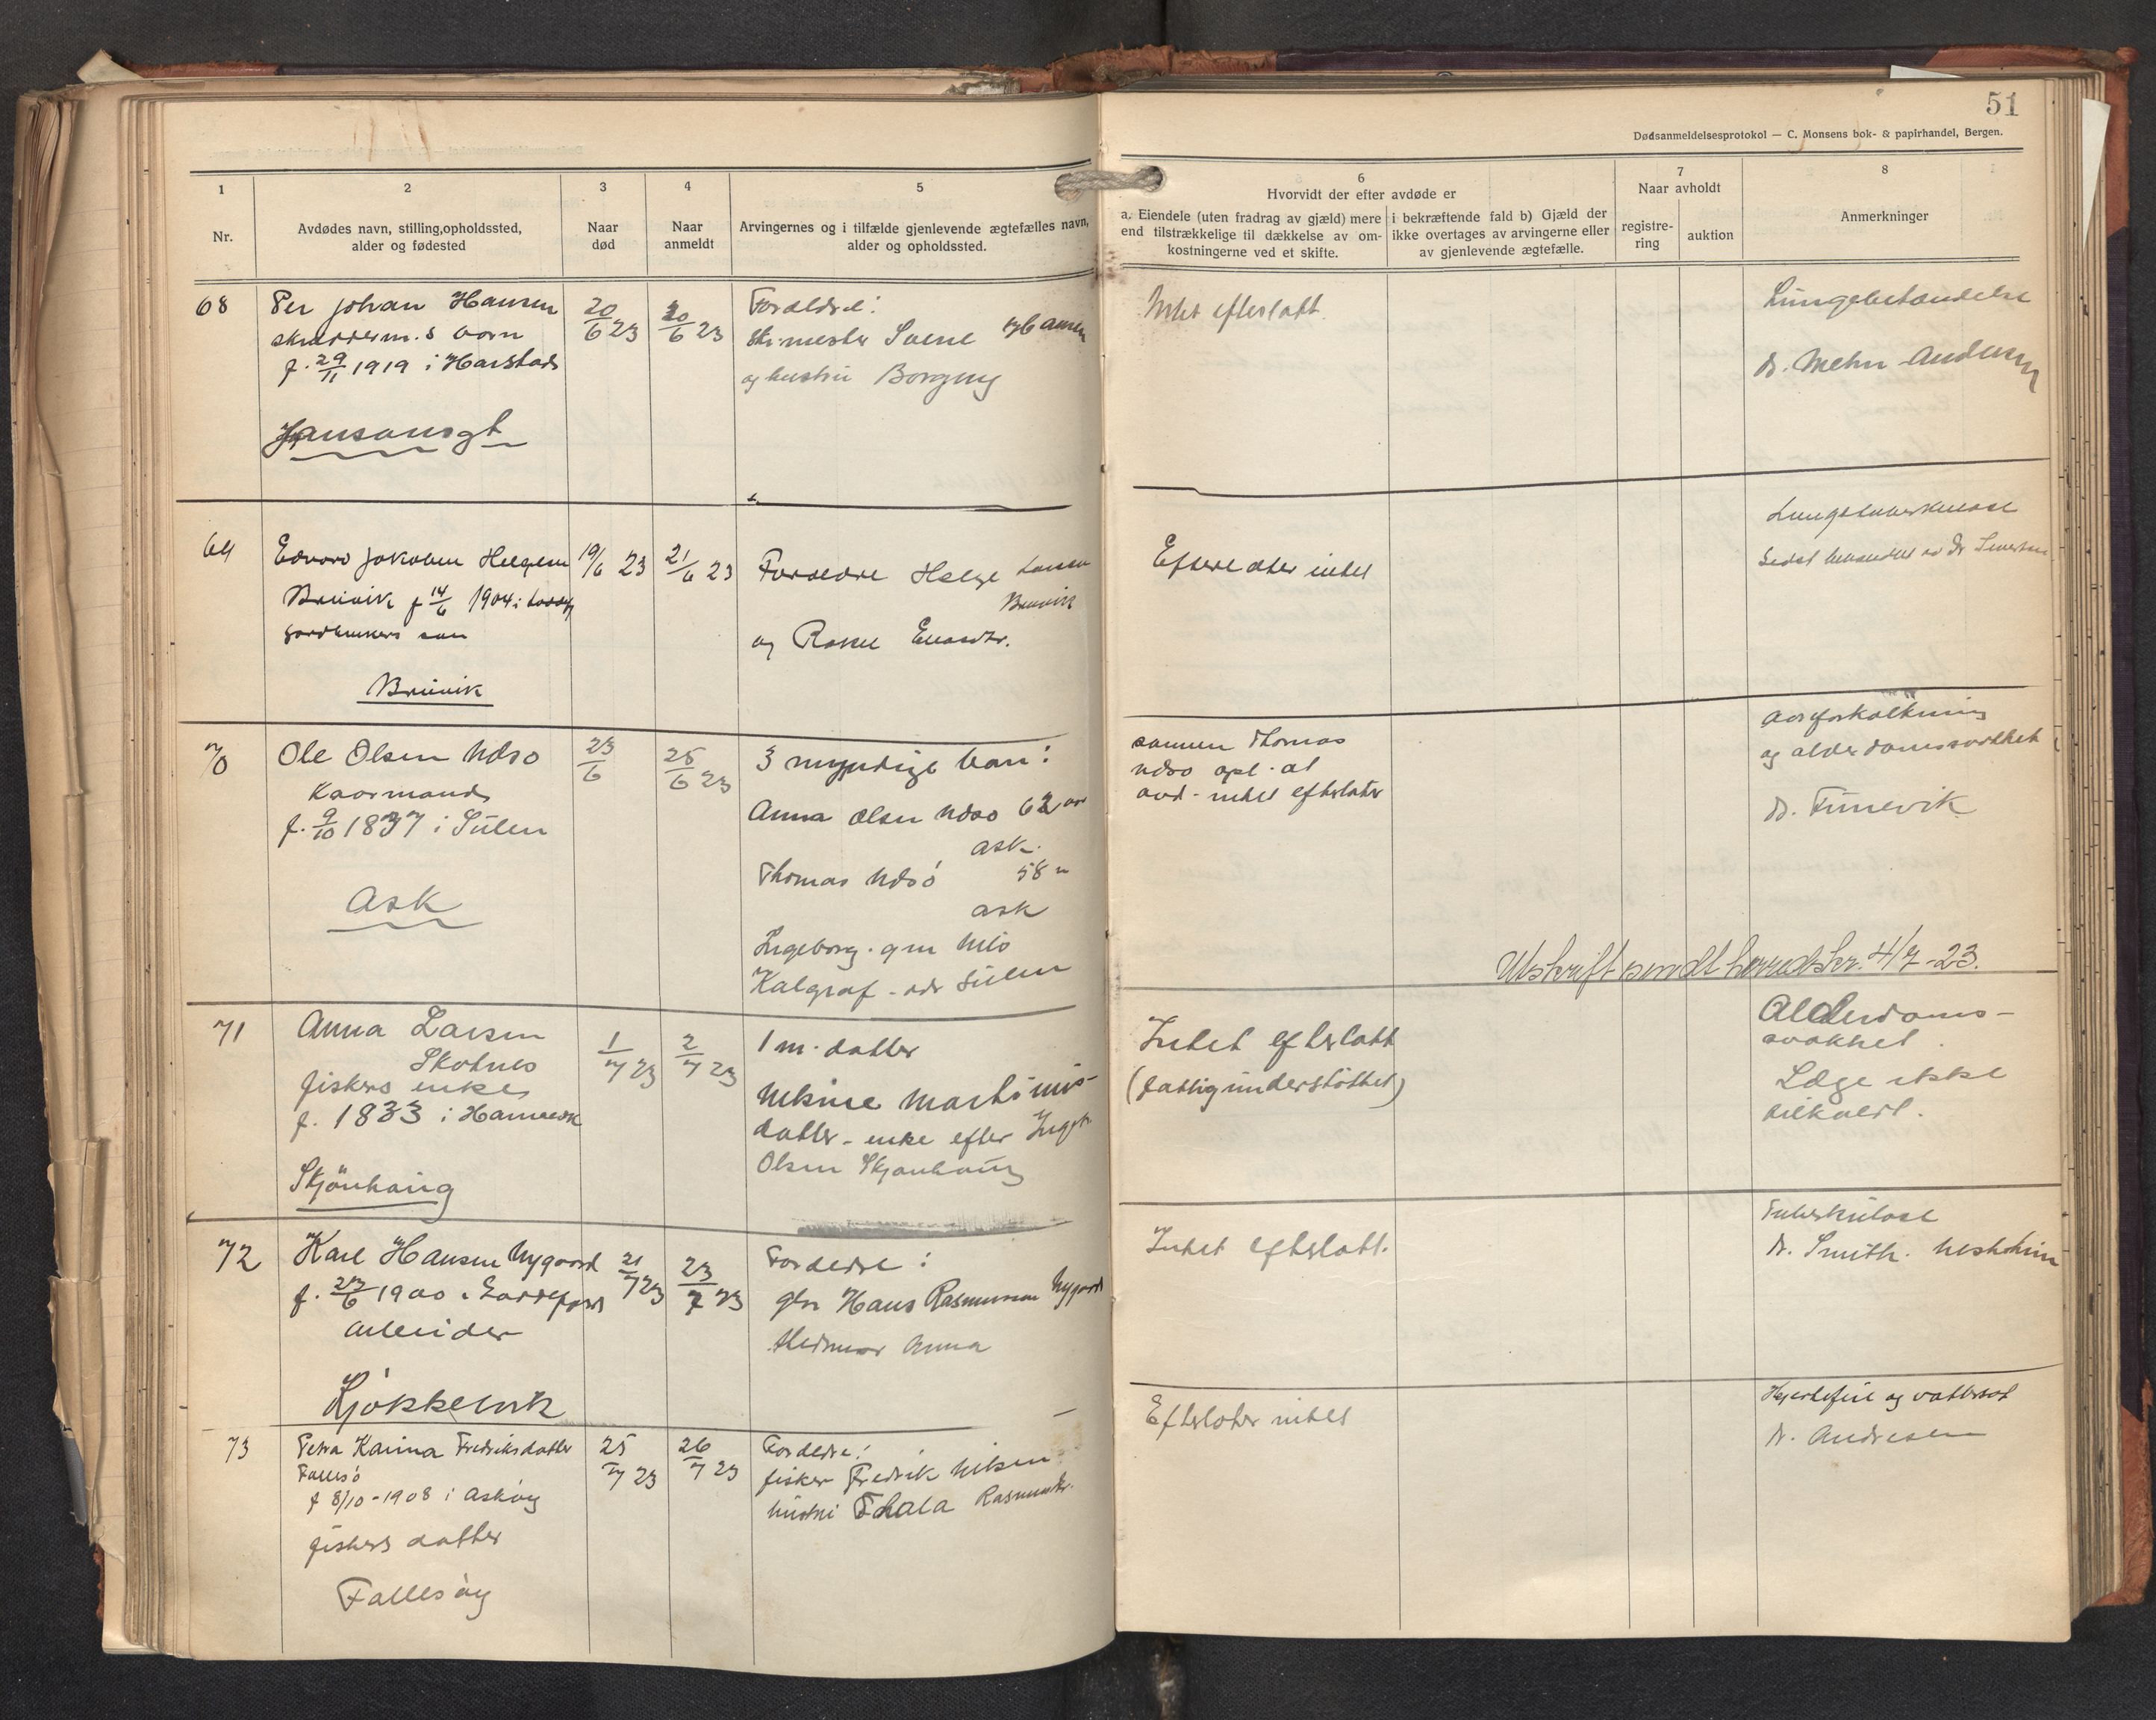 51
Dødsanmeldelsesprotokol — C. Monsens bok- & papirhandel, Bergen.
1
Nr.
2
Avdødes navn, stilling, opholdssted,
alder og fødested
3
Naar
død
4
Naar
anmeldt
5
Arvingernes og i tilfælde gjenlevende ægtefælles navn,
alder og opholdssted.
6
Hvorvidt der efter avdøde er
a. Eiendele (uten fradrag av gjæld) mere
end tilstrækkelige til dækkelse av om-
kostningerne ved et skifte.
i bekræftende fald b) Gjæld der
ikke overtages av arvingerne eller
av gjenlevende ægtefælle.
7
Naar avholdt
registre-
ring
auktion
8
Anmerkninger
68
Per Johan Hansen
skredderm.s barn
f. 29/11 1919 i Harstad
Hansanegt
20/6 23
20/6 23
Forældre:
Hansen
og hustru Borgny
Intet efterlatt
Lungebetændelse
dr. Mehn Andersen
Edvard Jakobsen Helgesen
Bruvik f 14/6 1904 i
gardbrukers søn
Bruvik
19/6 23
21/6 23
Foreldre Helge Larsen
Bruvik
og Rakel
Efterlater intet
Lungetuberkulose
Sidst behandlet av dr
70
Ole Olsen Udsø
Kaarmand
f. 9/10 1837 i Sulen
Ask
23/6
25/6 23
3 myndige barn:
Anna Olsen Udsø 62 aar
Ask.
Thomas Udsø 58 "
Ask
Ingeborg. gm Nils
Kalgraf - adr Sulen
sønnen Thomas
Udsø opl. at
avd. intet efterlater
Aareforkalkning
og alderdomssvakhet
dr. Tunevik
Utskrift sendt herredskr. 4/7-23.
71
Anna Larsen
Skotnes
fiskers enke
f. 1833 i Hamre
Skjönhaug
1/7 23
2/7 23
1 m. datter
Nilsine Martinus-
datter - enke efter
Olsen Skjønhaug
Intet efterlatt
(fattigunderstöttet)
Alderdoms-
svakhet.
Læge ikke
tilkaldt.
72
Karl Hansen Nygaard
f. 23/6 1900 i
arbeider
Kjökkelvik
21/7 23
23/7 23
Foreldre:
gbr Hans Rasmussen Nygaard
Anna
Intet efterlatt.
Tuberkulose
dr. Smith. Nestun
73
Petra Karina Fredriksdatter
Follesö
f 8/10-1908 i Asköy
fiskers datter
Follesöy
25/7 23
26/7 23
Foreldre:
fisker Fredrik Nilsen
hustru Thala Rasmusdtr.
Efterlater intet
Hjertefeil og vattersot
dr. Andresen